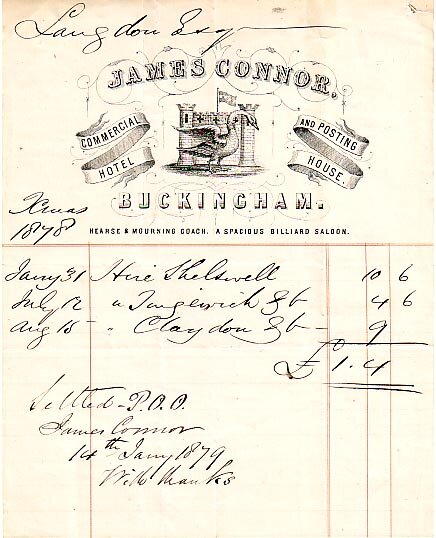 Langdon Esq
JAMES CONNOR,
COMMERCIAL
HOTEL
AND POSTING
HOUSE.
BUCKINGHAM.
Xmas
1878
HEARSE & MOURNING COACH. A SPACIOUS BILLIARD SALOON.
Jany 31 Hire Shelswell 10 6
July 12 " Tingewick & b 4 6
Aug 15 " Claydon & b 9
£ 1. 4
Settled - P.O.O.
James Connor
14th Jany 1879
With thanks